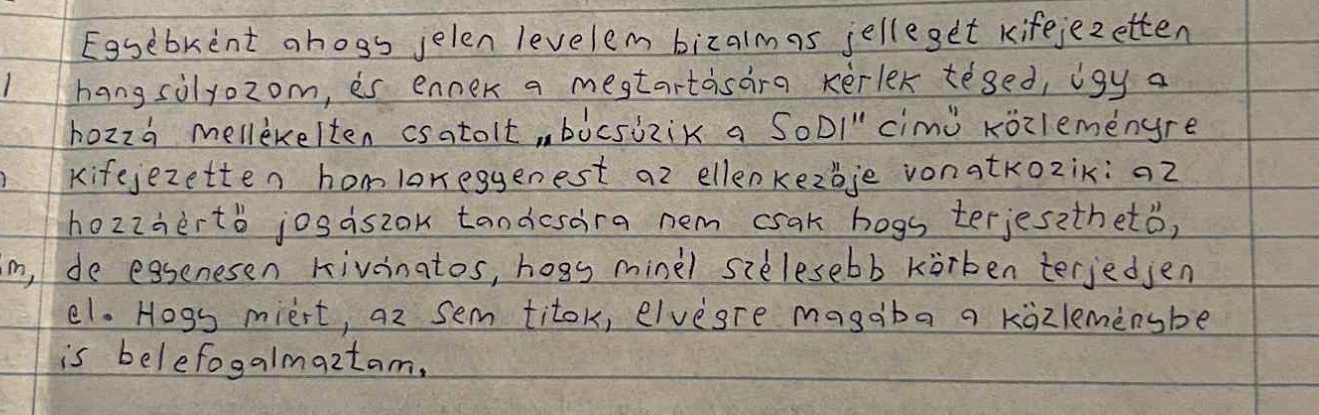 Egyébként ahogy jelen levelem bizalmas jellegét kifejezetten
hangsúlyozom, és ennek a megtartására kérlek téged, úgy a
hozzá mellékelten csatolt „búcsúzik a SoDI" című közleményre
kifejezetten homlokegyenest az ellenkezője vonatkozik: az
hozzáértő jogászok tanácsára nem csak hogy terjeszthető,
de egyenesen kívánatos, hogy minél szélesebb körben terjedjen
el. Hogy miért, az sem titok, elvégre magába a közleménybe
is belefogalmaztam.